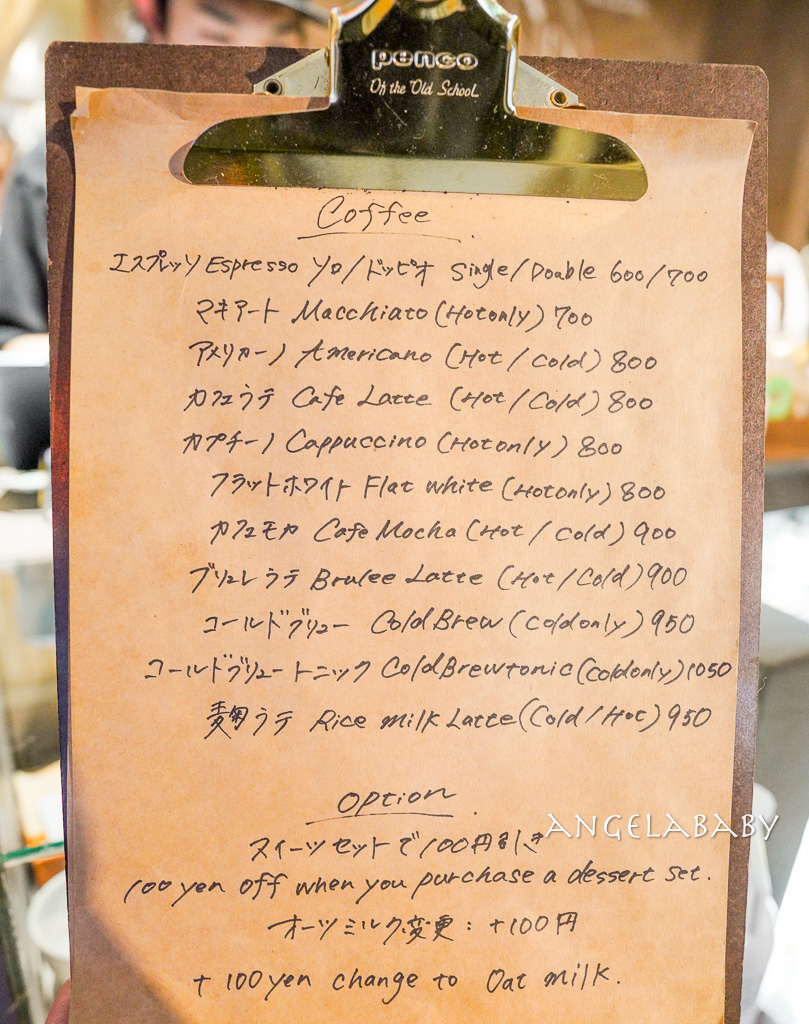 penco
Of the Old School
Coffee
エスプレッソ Espresso ソロ/ドッピオ Single/Double 600/700
マキアート Macchiato (Hotonly) 700
アメリカーノ Americano (Hot/Cold) 800
カフェラテ Cafe Latte (Hot/Cold) 800
カプチーノ Cappuccino (Hotonly) 800
フラットホワイト Flat white (Hotonly) 800
カフェモカ Cafe Mocha (Hot/Cold) 900
ブリュレラテ Brulee Latte (Hot/Cold) 900
コールドブリュー Cold Brew (Coldonly) 950
コールドブリュートニック Cold Brew tonic (Coldonly) 1050
麹ラテ Rice milk Latte (Cold/Hot) 950
Option
スイーツセットで100円引き
ANGELABABY
100 yen off when you purchase a dessert set.
オーツミルク変更：+100円
+ 100 yen change to Oat milk.